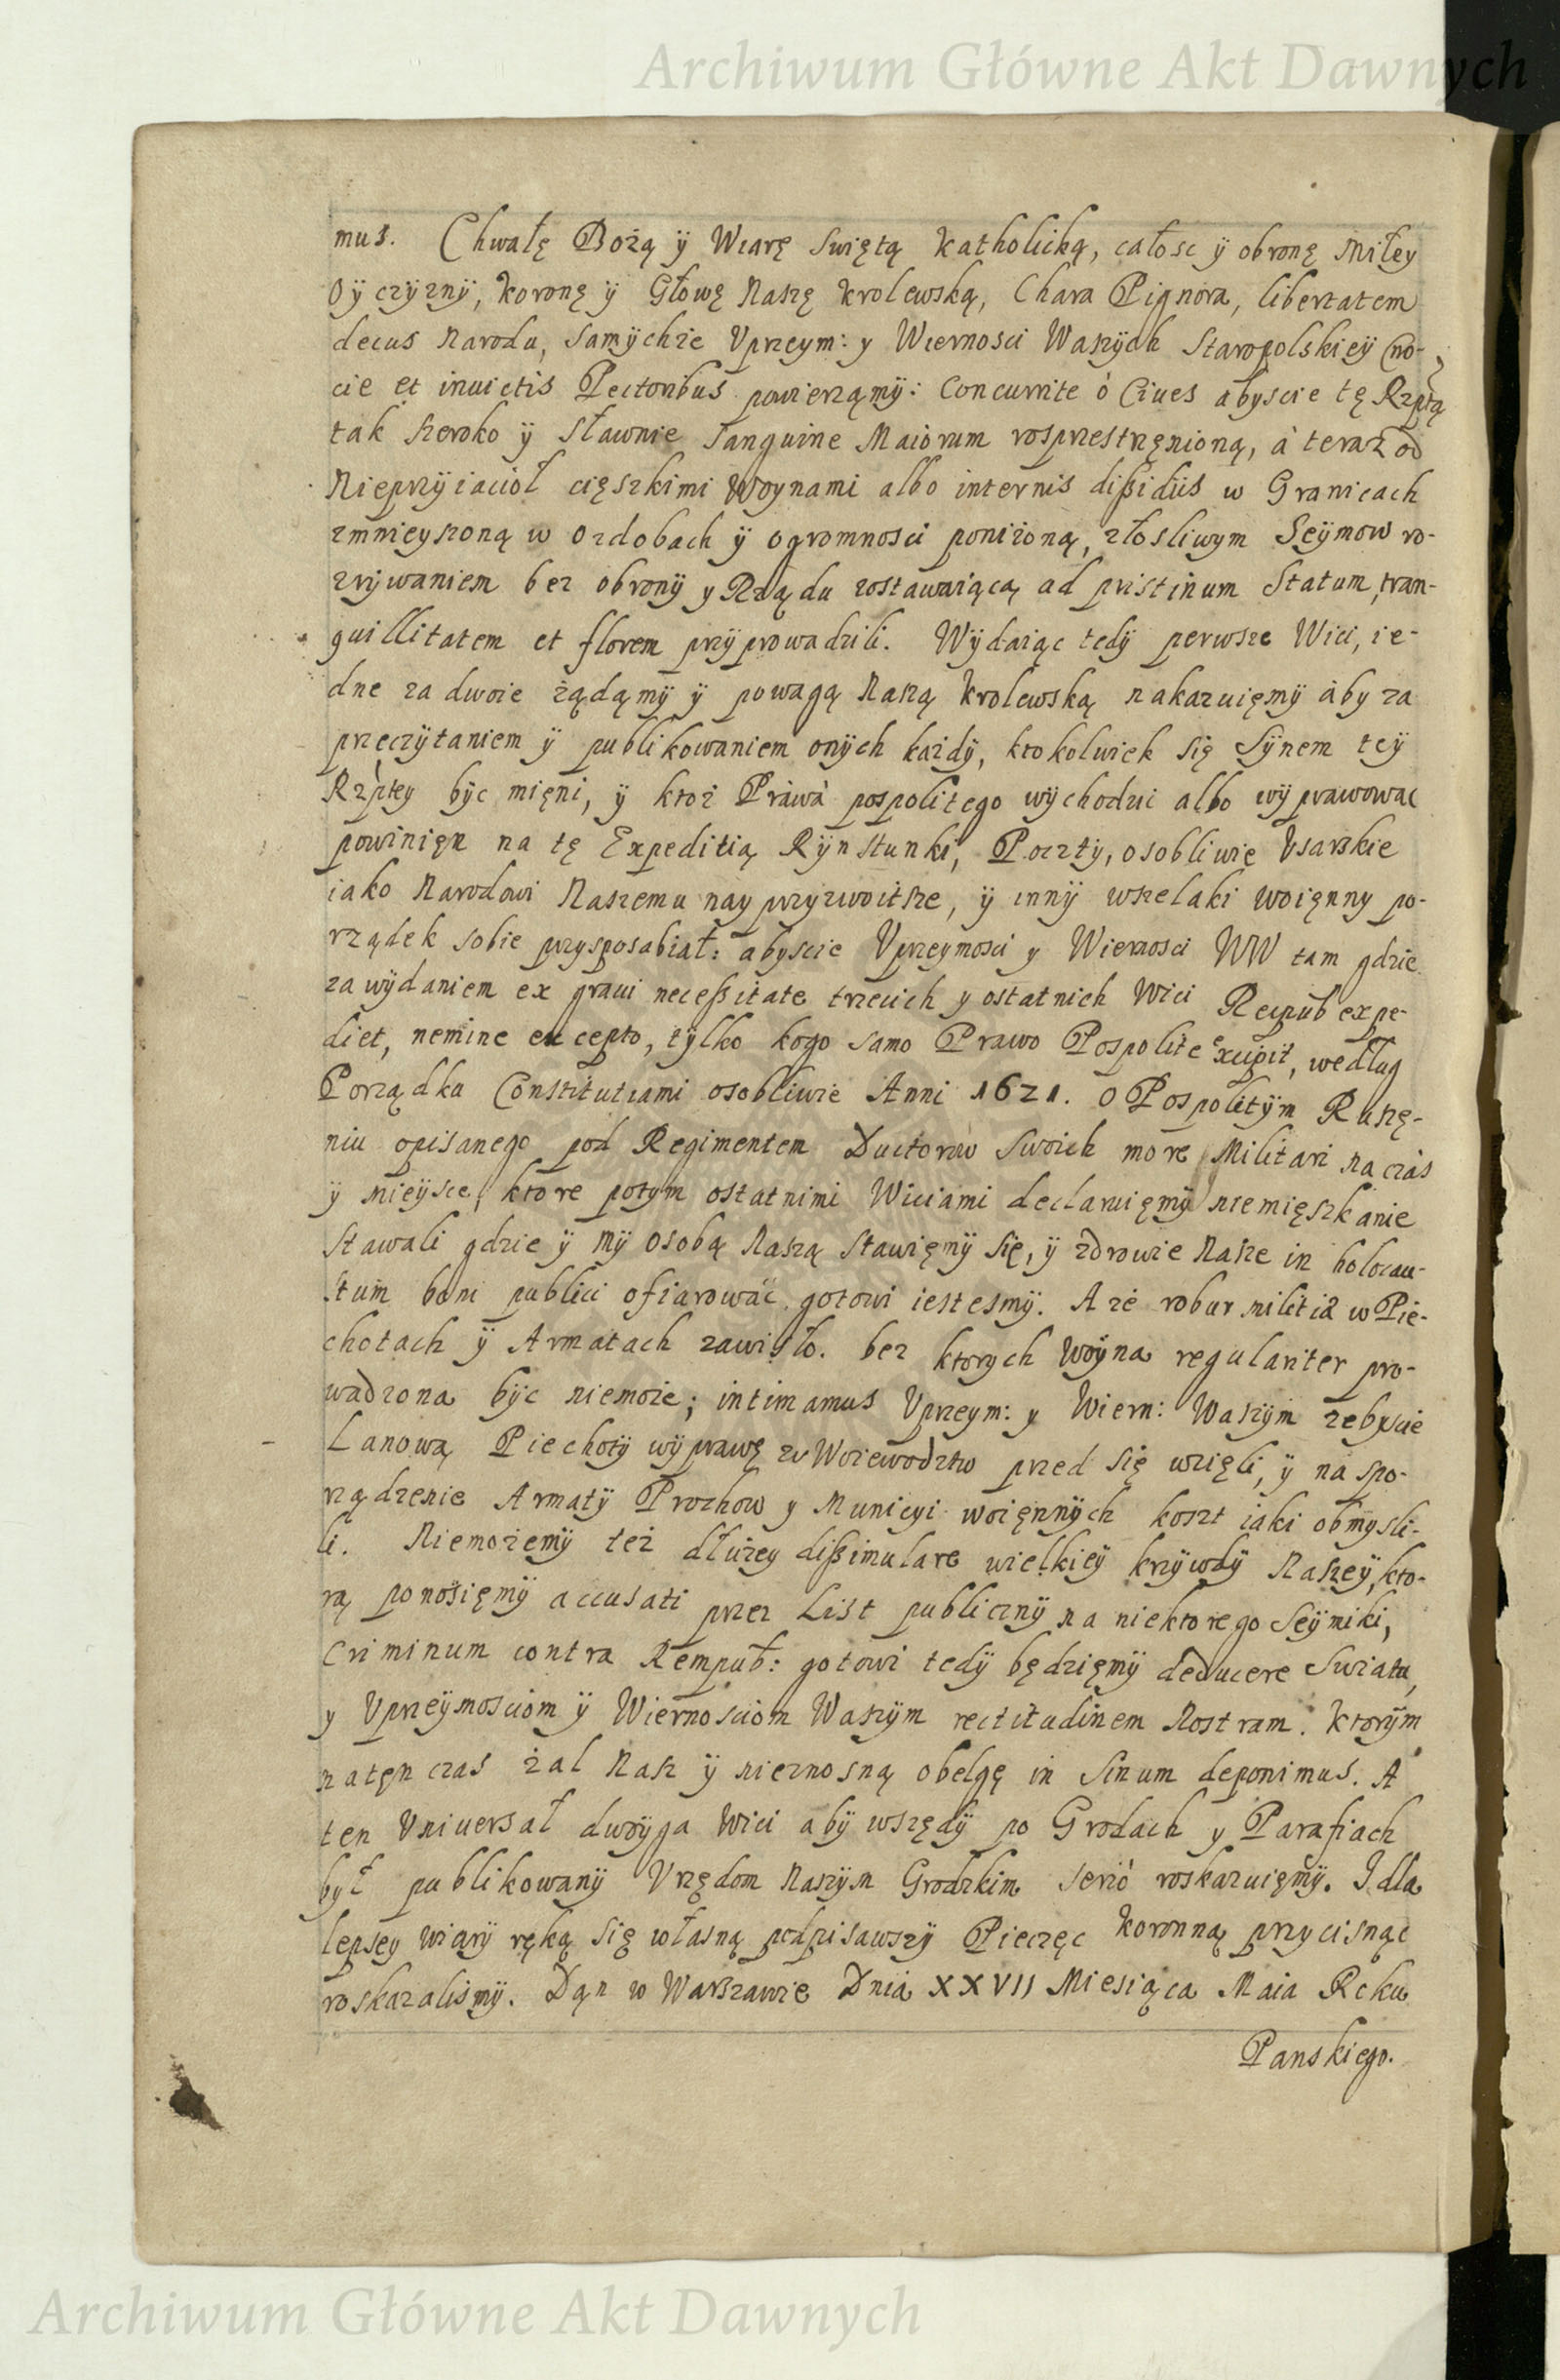 Archiwum Główne Akt Dawnych
mus. Chwałę Bożą ÿ Wiarę Swiętą Katholicką, całosc ÿ obronę Miłey
Oÿczyznÿ, Koronę ÿ Głowę Naszę Krolewską, Chara Pignora, libertatem
decus Narodu, Samÿchże Vprzeym: y Wiernosci Waszÿch Staropolskieÿ Cno-
cie et inuictis Pectoribus powierząmÿ: Concurrite ò Ciues abyscie tę Rzptą
tak szeroko ÿ sławnie Sanguine Maiorum rosprzestrzęnioną, à teraz od
Nieprzÿiacioł cięszkimi Woynami albo internis dißidiis w Granicach
zmnieyszoną w Ozdobach ÿ ogromnosci poniżoną, złosliwym Seÿmow ro-
zrÿwaniem bez obronÿ y Rządu zostawaiącą ad pristinum Statum, tran-
quillitatem et florem przÿprowadzili. Wÿdaiąc tedÿ perwsze Wici, ie-
dne za dwoie żądąmÿ ÿ powagą Naszą Krolewską nakazuięmÿ àby za
przeczÿtaniem ÿ publikowaniem onÿch każdÿ, ktokolwiek się Sÿnem teÿ
Rzptey bÿc mięni, ÿ ktoż Prawà pospolitego wÿchodzic albo wÿprawowac
powinięn na tę Expeditią Rÿnsztunki, Poczty, osobliwie Vsarskie
iako Narodowi Naszemu nayprzyzwoitsze, ÿ innÿ wszelaki woięnny po-
rządek sobie przysposabiał: abyscie Vprzeymosci y Wiernosci WW tam gdzie
za wÿdaniem ex graui neceßitate trzecich y ostatnich Wici Reipub expe-
diet, nemine excepto, tÿlko kogo samo Prawo Pospolite excipit, według
Porządku Constitutiami osobliwie Anni 1621. O Pospolitÿm Ruszę-
niu opisanego pod Regimentem Ductorow Swoich more Militari na czas
ÿ mieÿsce, ktore potym ostatnimi Wiciami declaruięmÿ niemięszkanie
stawali gdzie ÿ mÿ osobą Naszą stawięmÿ się, ÿ zdrowie Nasze in holocau-
stum boni publici ofiarowac gotowi iestesmÿ. A że robur militiæ w Pie-
chotach ÿ Armatach zawisło. bez ktorych Woÿna regulariter pro-
wadzona bÿc niemoże; intimamus Vprzeym: y Wiern: Waszÿm żebyscie
Lanową Piechotÿ wÿprawę z Woiewodztw przed się wzięli, ÿ na spo-
rządzenie Armatÿ Prochow y Municyi woięnnÿch koszt iaki obmysli-
li. Niemożemÿ też dłużey dißimulare wielkieÿ krzÿwdÿ Naszeÿ, kto-
rą ponosięmÿ accusati przez List publicznÿ na niektorego Seÿmiki,
Criminum contra Rempub: gotowi tedÿ będzięmÿ deducere Swiatu,
y Vprzeÿmosciom ÿ Wiernosciom Waszÿm rectitudinem Nostram. Ktorÿm
natęn czas żal Nasz ÿ nieznosną obelgę in Sinum deponimus. A
ten Vniuersał dwoÿga Wici abÿ wszędÿ po Grodach y Parafiach
był publikowanÿ Vrzędom Naszÿm Grodzkim seriò roskazuięmÿ. I dla
lepsey wiarÿ ręką się własną podpisawszÿ Pieczęc Koronną przycisnąc
roskazalismÿ. Dąn w Warszawie Dnia XXVII Miesiąca Maia Roku
Panskiego.
Archiwum Główne Akt Dawnych